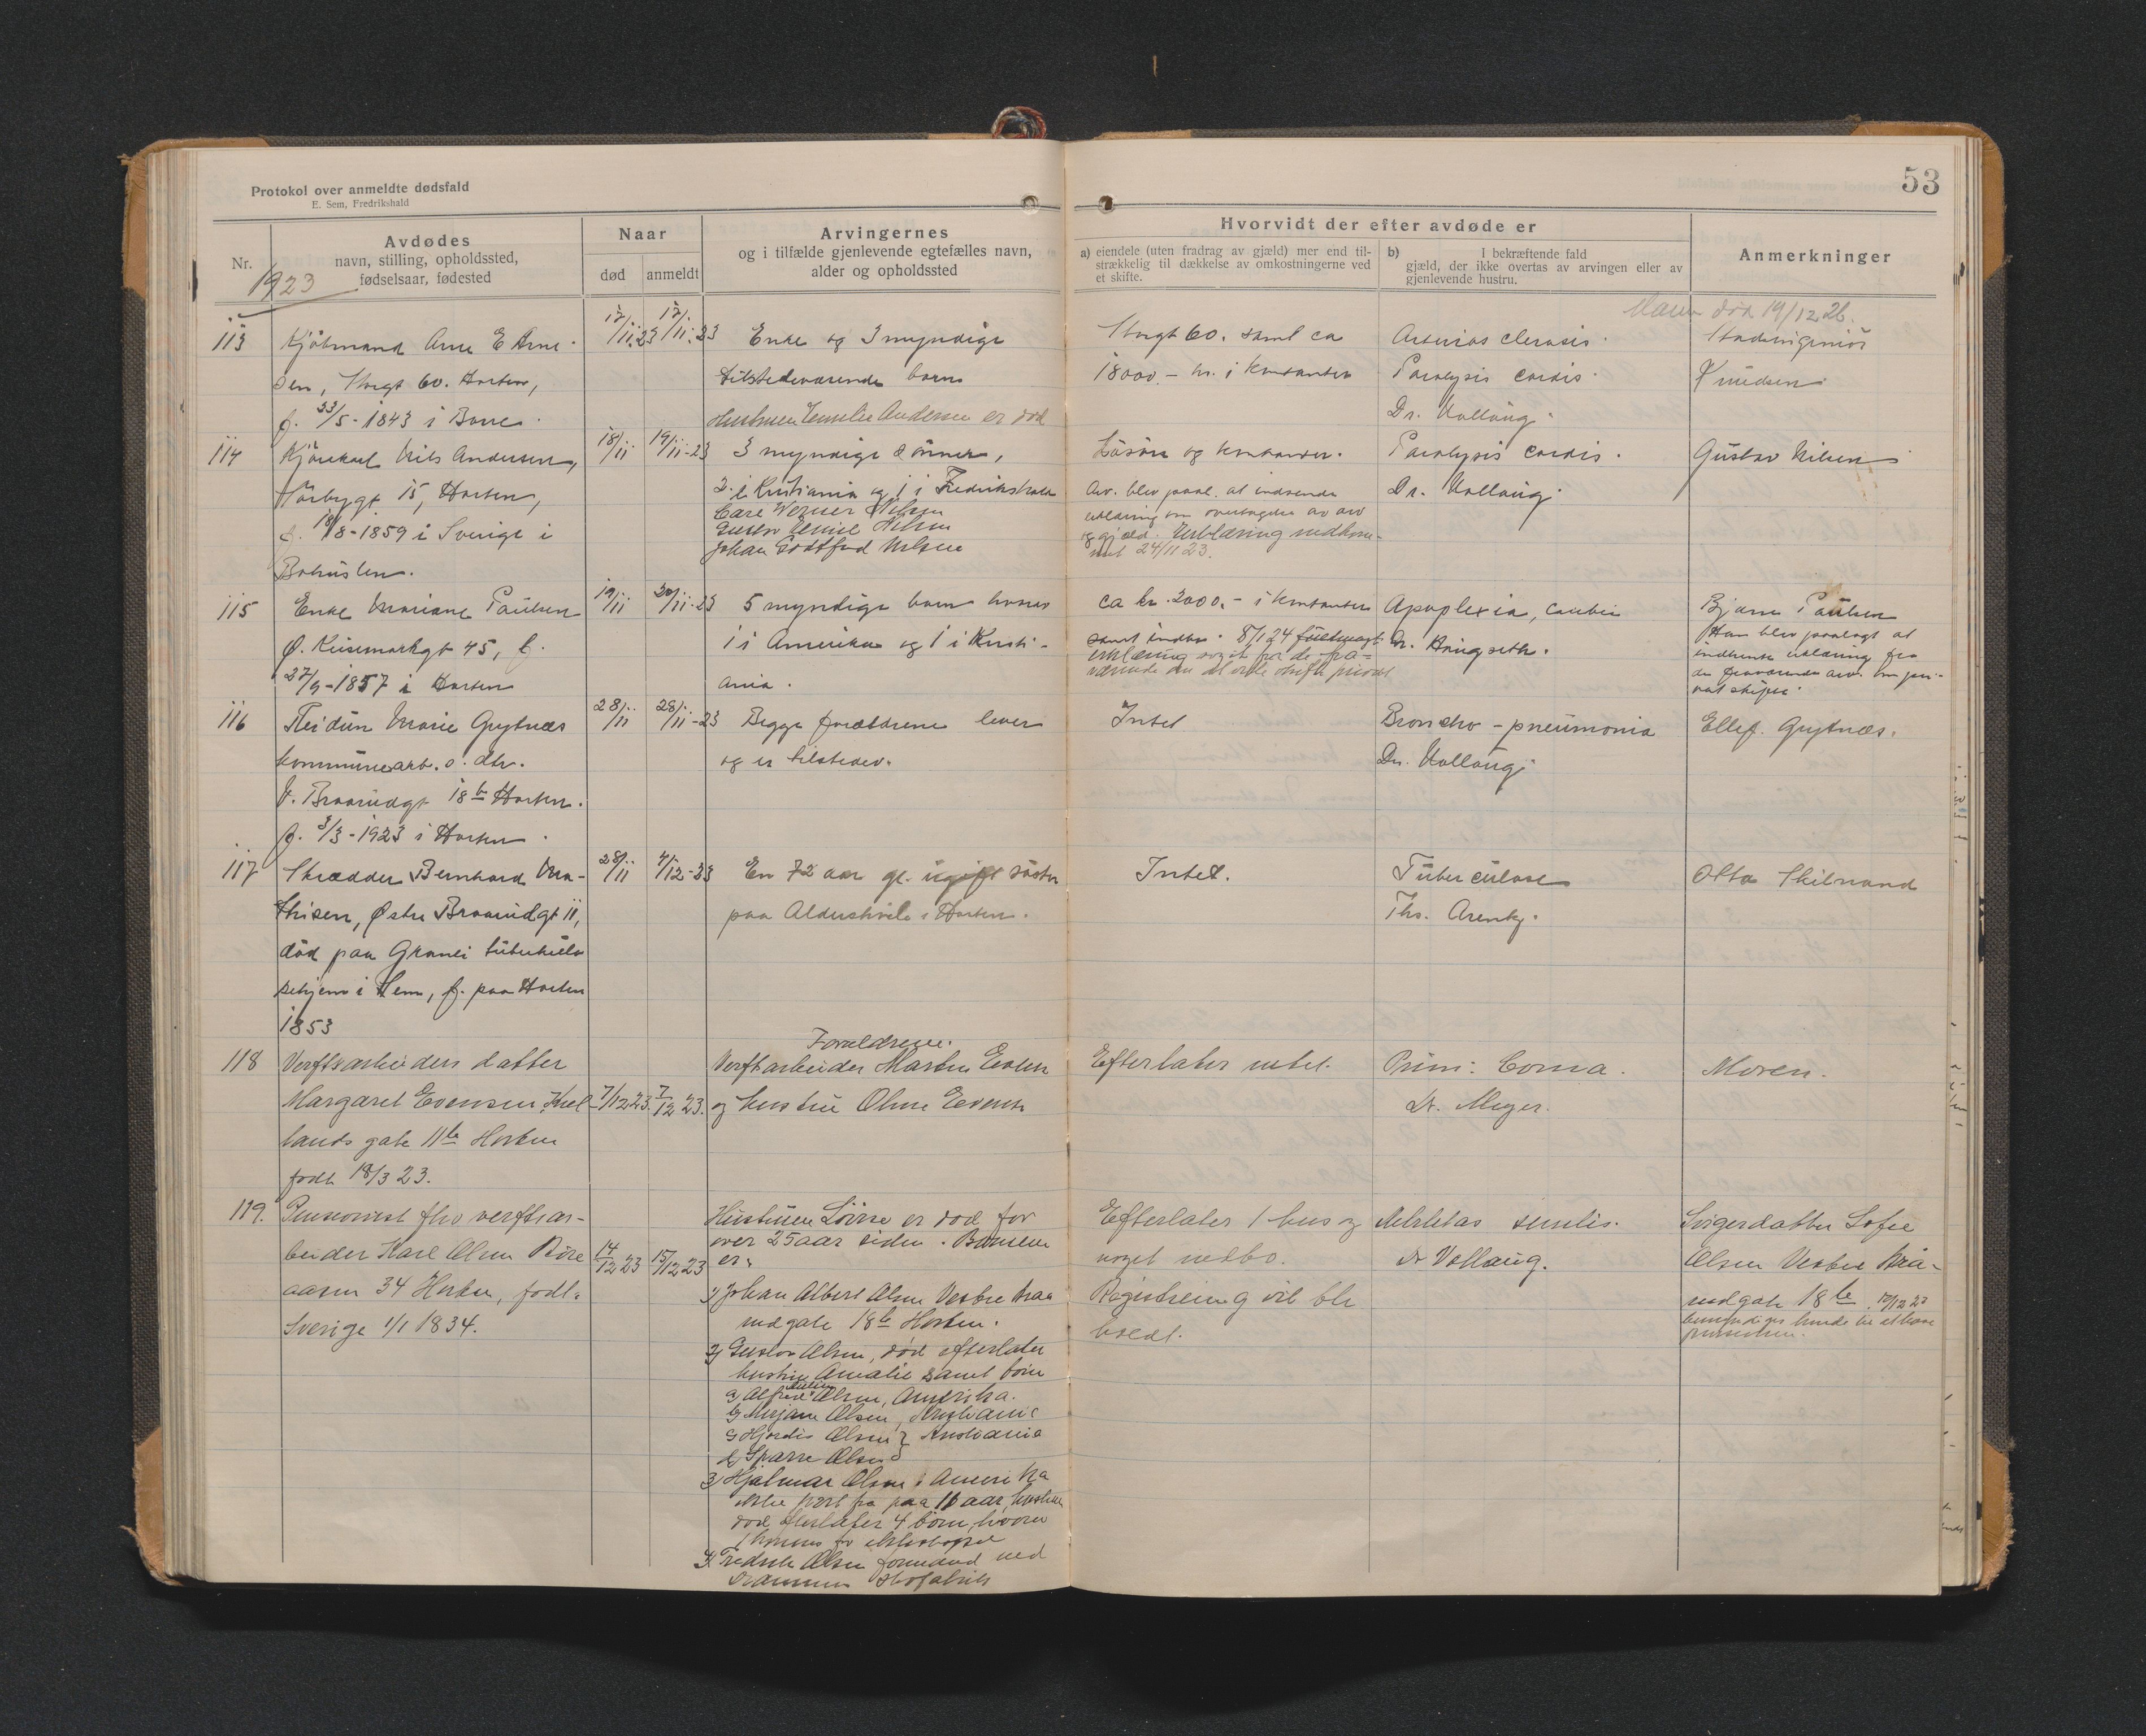 Protokol over anmeldte dødsfald
E. Sem, Fredrikshald
53
Nr.
1923
Avdødes
navn, stilling, opholdssted,
fødselsaar, fødested
Naar
død
anmeldt
Arvingernes
og i tilfælde gjenlevende egtefælles navn,
alder og opholdssted
Hvorvidt der efter avdøde er
a) eiendele (uten fradrag av gjæld) mer end til-
strækkelig til dækkelse av omkostningerne ved
et skifte.
b) I bekræftende fald
gjæld, der ikke overtas av arvingen eller av
gjenlevende hustru.
Anmerkninger
død 19/12 26.
113
Kjøbmand Arne E Arne-
sen, Storgt 60. Horten,
f. /5-1843 i Borre.
17/11.23
17/11-23
Enke og 3 myndige
tilstedeværende barn
Hustruen Emilie Andersen er død
Storgt 60. samt ca
18000.- kr. i kontanter
Arterios clerosis.
Paralysis cordis.
Dr. Vollaug.
Stadsingeniør
Knudsen
114
Kjørekarl Nils Andersen,
15, Horten,
f. 18/8-1859 i Sverige i
Bohuslen.
18/11
19/11-23
3 myndige sønner,
2 i Kristiania og 1 i Fredrikshald
Carl Werner Nilsen
Gustav Nilsen
Johan Godtfred Nilsen
Løsøre og kontanter.
Arv. blev paal. at indsende
erklæring om overtagelse av arv
og gjæld. Erklæring indkom-
met 24/11 23.
Paralysis cordis.
Dr. Vollaug.
Gustav Nilsen
115
Enke Mariane Paulsen
Ø. Keisemarkgt 45, f.
27/9-1857 i Horten
19/11
20/11-23
5 myndige barn hvorav
1 i Amerika og 1 i Kristi-
ania.
ca kr. 2000.- i kontanter
samt indbo. 8/1 24 fuldmagt
erklæring for de fra-
værende om at skifte privat
Apoplexia, cerebri
Dr. Ringseth.
Bjarne Paulsen
Han blev paalagt at
indhente erklæring fra
de fraværende arv. om pri-
vat skifte.
116
Reidun Marie Grytnæs
kommunearb. d. dtr.
V. Braarudgt 18b Horten.
f. 3/3-1923 i Horten.
28/11
28/11-23
Begge forældrene lever
og er tilstedev.
Intet
Broncho-pneumonia
Dr. Vollaug
Ellef. Grytnæs.
117
Skrædder Bernhard Ma-
thisen, Østre Braarudgt 11,
død paa Granli tuberkulo
sehjem i Sem, f. paa Horten
1853
28/11
4/12-23
En 72 aar gl. ugift søster
paa Aldershvile i Horten.
Intet.
Tuberculose
Ths. Arentz.
Otto Skibrand
118
Verftsarbeiders datter
Margaret Evensen, Kiel-
lands gate 11b Horten
født 18/3 23.
7/12 23.
7/12 23.
Forældrene.
Verftsarbeider Marten Evensen
og hustru Olene Evensen
Efterlater intet.
Prim: Coma.
Dr. Meyer.
Moren.
119.
Pensionist fhv verftsar-
beider Karl Olsen Børe
aasen 34 Horten, født.
Sverige 1/1 1834.
14/12 23
15/12 23
Hustruen Lovise er død for
over 25 aar siden. Barnene
er:
1) Johan Albert Olsen Vestre Braa
rudgate 18b Horten.
2) Gustav Olsen, død efterlater
hustru Amalie samt børn
a) Alfred Olsen, Amerika.
b) Mirjam Olsen, Kristiania
c) Hjørdis Olsen } Kristiania
d) Sparre Olsen
3) Hjalmar Olsen i Amerika
ikke hørt fra paa 11 aar, hustru
død efterlater 4 børn, hvorav
4) Fredrik Olsen formand ved
Drammen skofabrik
Efterlater 1 hus og
noget indbo.
Registrering vil bli
holdt.
Debilitas senilis.
Dr Vollaug.
Svigerdatter Sofie
Olsen Vestre Braa-
rudgate 18b. 15/12 23
bemyndiges hende til at hæve
pensionen.